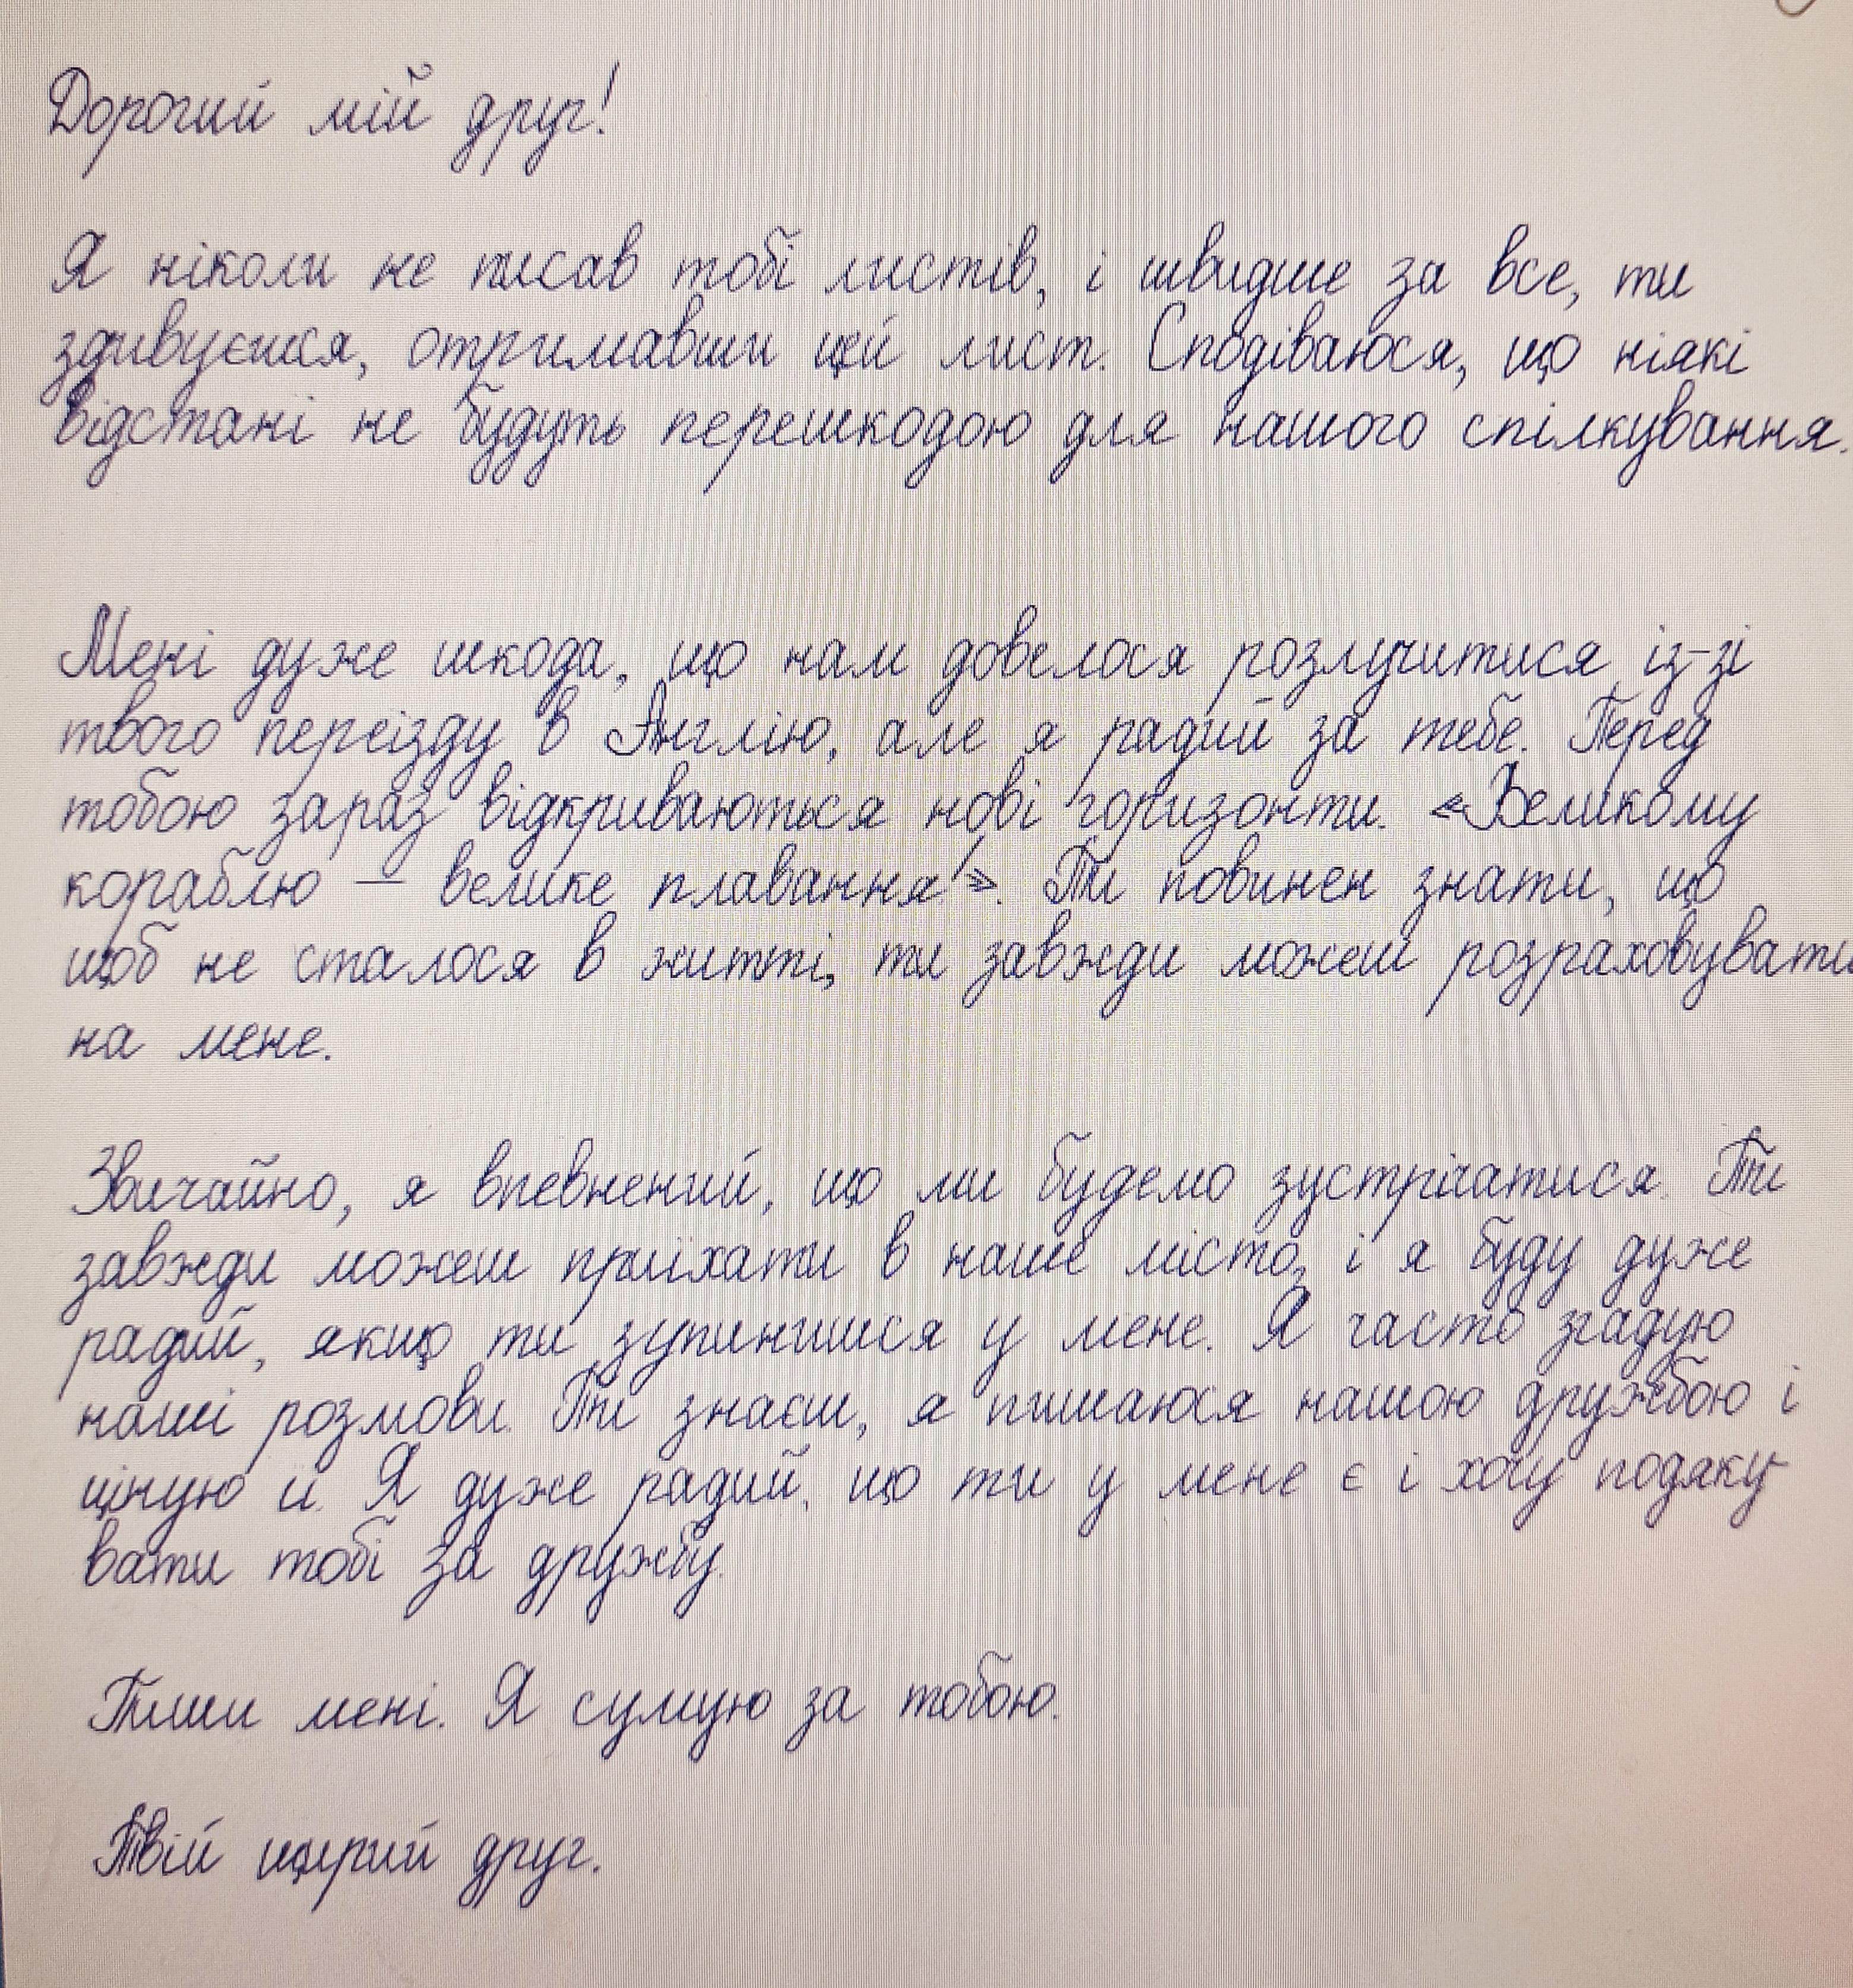 Дорогий мій друг!
Я ніколи не писав тобі листів, і швидше за все, ти
здивуєшся, отримавши цей лист. Сподіваюся, що ніякі
відстані не будуть перешкодою для нашого спілкування.
Мені дуже шкода, що нам довелося розлучитися із-зі
твого переїзду в Англію, але я радий за тебе. Перед
тобою зараз відкриваються нові горизонти. «Великому
кораблю — велике плавання!». Ти повинен знати, що
щоб не сталося в житті, ти завжди можеш розраховувати
на мене.
Звичайно, я впевнений, що ми будемо зустрічатися. Ти
завжди можеш приїхати в наше місто, і я буду дуже
радий, якщо ти зупинишся у мене. Я часто згадую
наші розмови. Ти знаєш, я пишаюся нашою дружбою і
ціную її. Я дуже радий, що ти у мене є і хочу подяку-
вати тобі за дружбу.
Пиши мені. Я сумую за тобою.
Твій щирий друг.